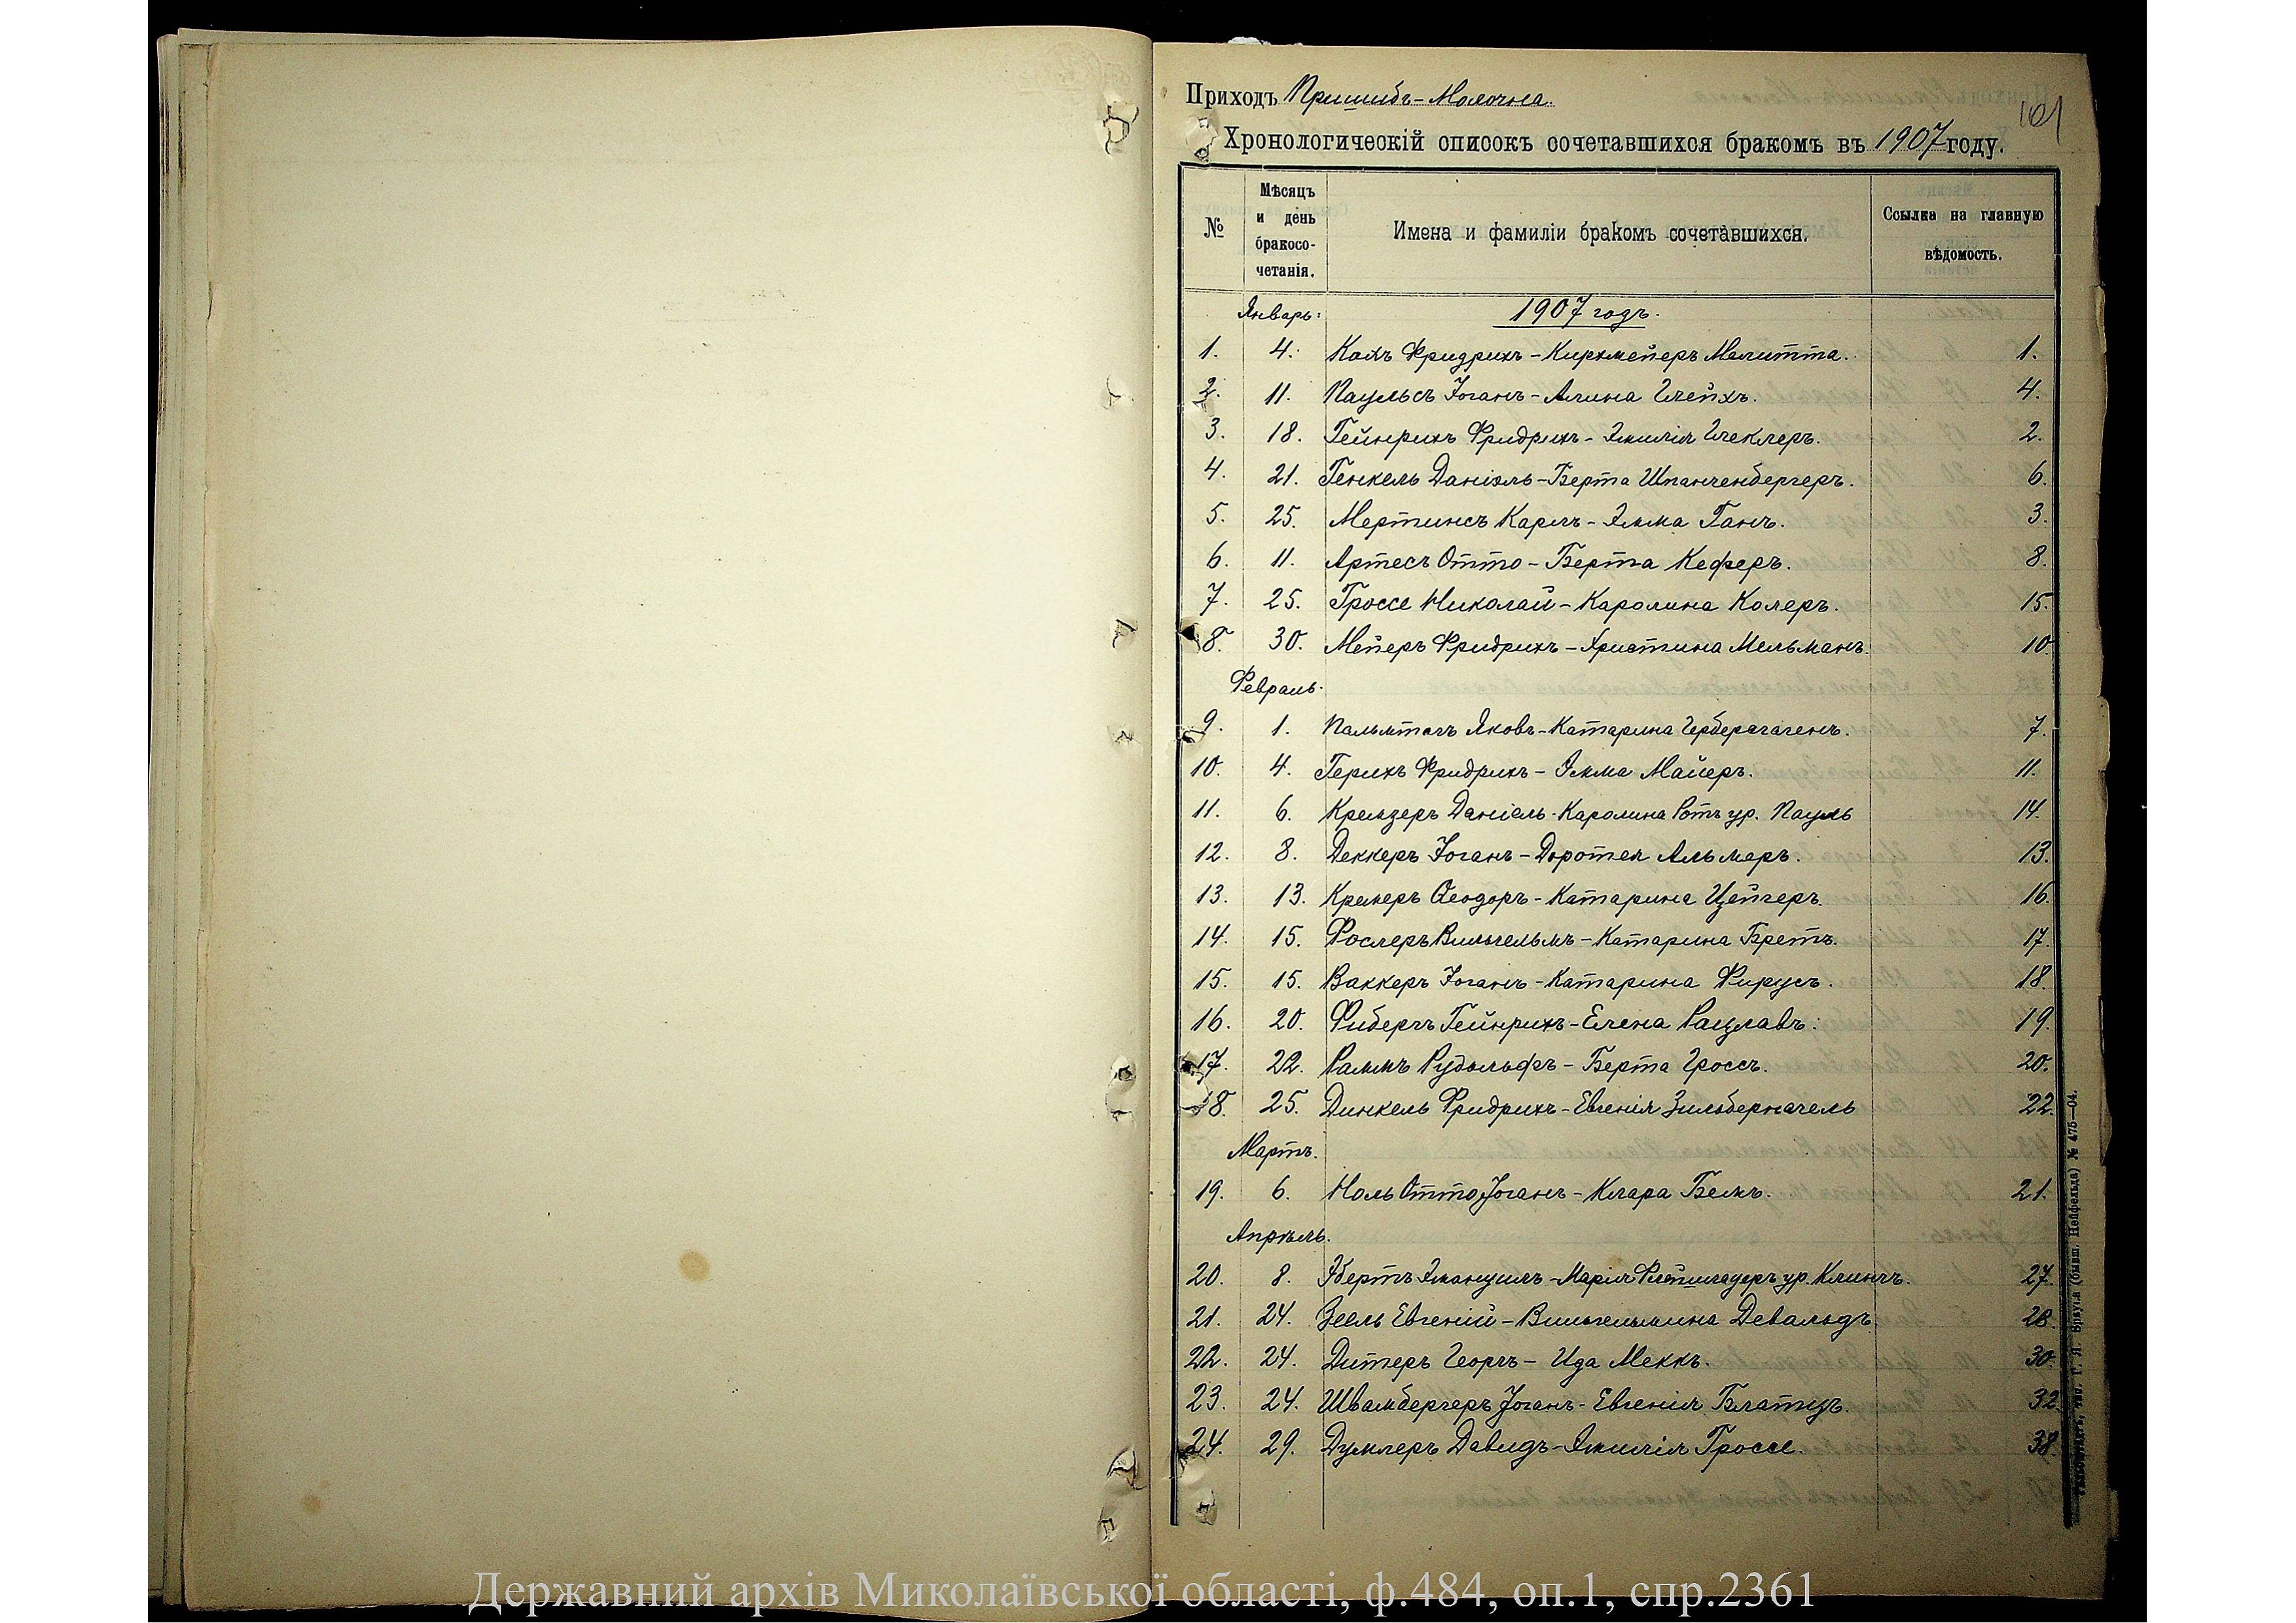 Приходъ Пришибъ-Молочна.
101
Хронологическій списокъ сочетавшихся бракомъ въ 1907 году.
№ Мѣсяцъ и день бракосо-четанія. Имена и фамиліи бракомъ сочетавшихся. Ссылка на главную вѣдомость.
Январь: 1907 годъ.
1. 4. Фридрихъ - Кирхмейеръ Мелитта. 1.
2. 11. Паульсъ Іоганъ - Алина 4.
3. 18. Гейнрихъ Фридрихъ - Эмилія 2.
4. 21. Генкель Даніэль - Берта Шпангенбергеръ. 6.
5. 25. Мертинсъ Карлъ - Эмма Ганъ. 3.
6. 11. Артесъ Отто - Берта Кеферъ. 8.
7. 25. Гроссе Николай - Каролина Колеръ. 15.
8. 30. Мейеръ Фридрихъ - Христина Мельманъ. 10
Февраль.
9. 1. Пальмтагъ Яковъ - Катарина Герберсгагенъ. 7.
10. 4. Герихъ Фридрихъ - Эмма Майеръ. 11.
11. 6. Даніель - Каролина Ротъ ур. Пауль 14.
12. 8. Деккеръ Іоганъ - Доротея Альмеръ. 13.
13. 13. Кремеръ Ѳеодоръ - Катарина Цейгеръ. 16.
14. 15. Фослеръ Вильгельмъ - Катарина Бретъ. 17.
15. 15. Ваккеръ Іоганъ - Катарина Фирусъ. 18.
16. 20. Фибергъ Гейнрихъ - Елена Рацлавъ. 19.
17. 22. Раммъ Рудольфъ - Берта Гроссъ. 20.
18. 25. Динкель Фридрихъ - Евгенія Зильбернагель 22.
Мартъ.
19. 6. Ноль Отто Іоганъ - Клара Бемъ. 21.
Апрѣль.
20. 8. Эбертъ Эмануилъ - Марія ур. Клингъ. 27.
21. 24. Зеель Евгеній - Вильгельмина Девальдъ 28.
22. 24. Дитеръ Георгъ - Ида Меккъ. 30.
23. 24. Швамбергеръ Іоганъ - Евгенія Блатцъ. 32.
24. 29. Думлеръ Давидъ - Эмилія Гроссе. 38.
(бывш. Нейфельда) № 475—04.
Державний архів Миколаївської області, ф.484, оп.1, спр.2361